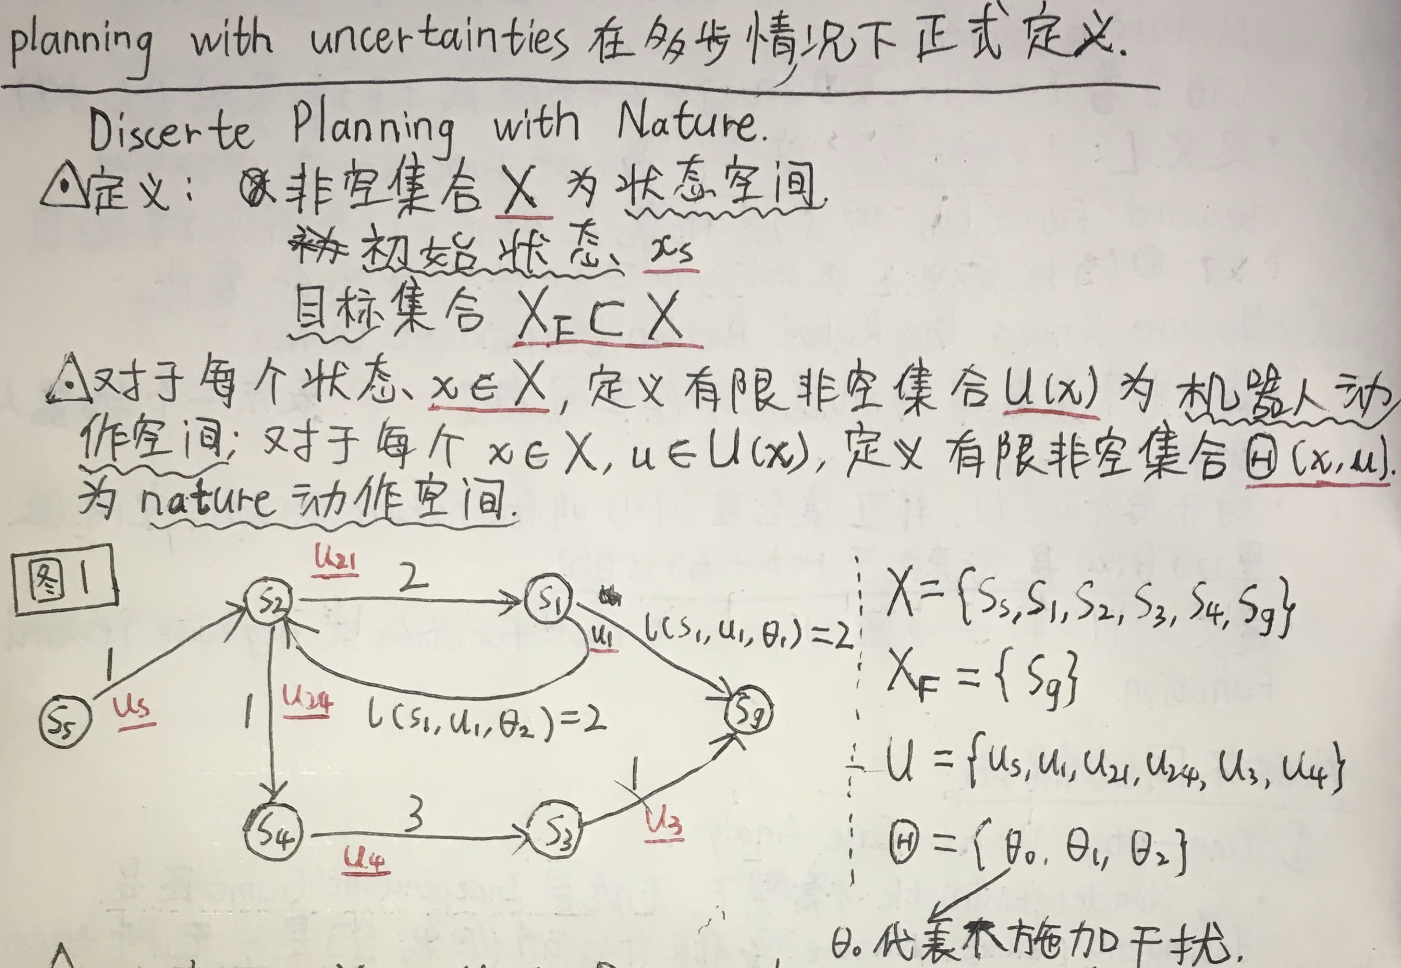 planning with uncertainties 在多步情况下正式定义.
Discerte Planning with Nature.
定义: 非空集合 X 为状态空间
初始状态 xs
目标集合 X_F ⊂ X
对于每个状态 x∈X, 定义有限非空集合 U(x) 为 机器人动
作空间; 对于每个 x∈X, u∈U(x), 定义有限非空集合 Ⓗ(x,u).
为 nature 动作空间.
图1
u21
2
S2
S1
u1
l(s1,u1,θ1)=2
1
us
Ss
1
u24
l(s1,u1,θ2)=2
Sg
S4
3
u4
S3
1
u3
X={Ss,S1,S2,S3,S4,Sg}
X_F={Sg}
U={us,u1,u21,u24,u3,u4}
Ⓗ={θ0,θ1,θ2}
θ0代表不施加干扰.